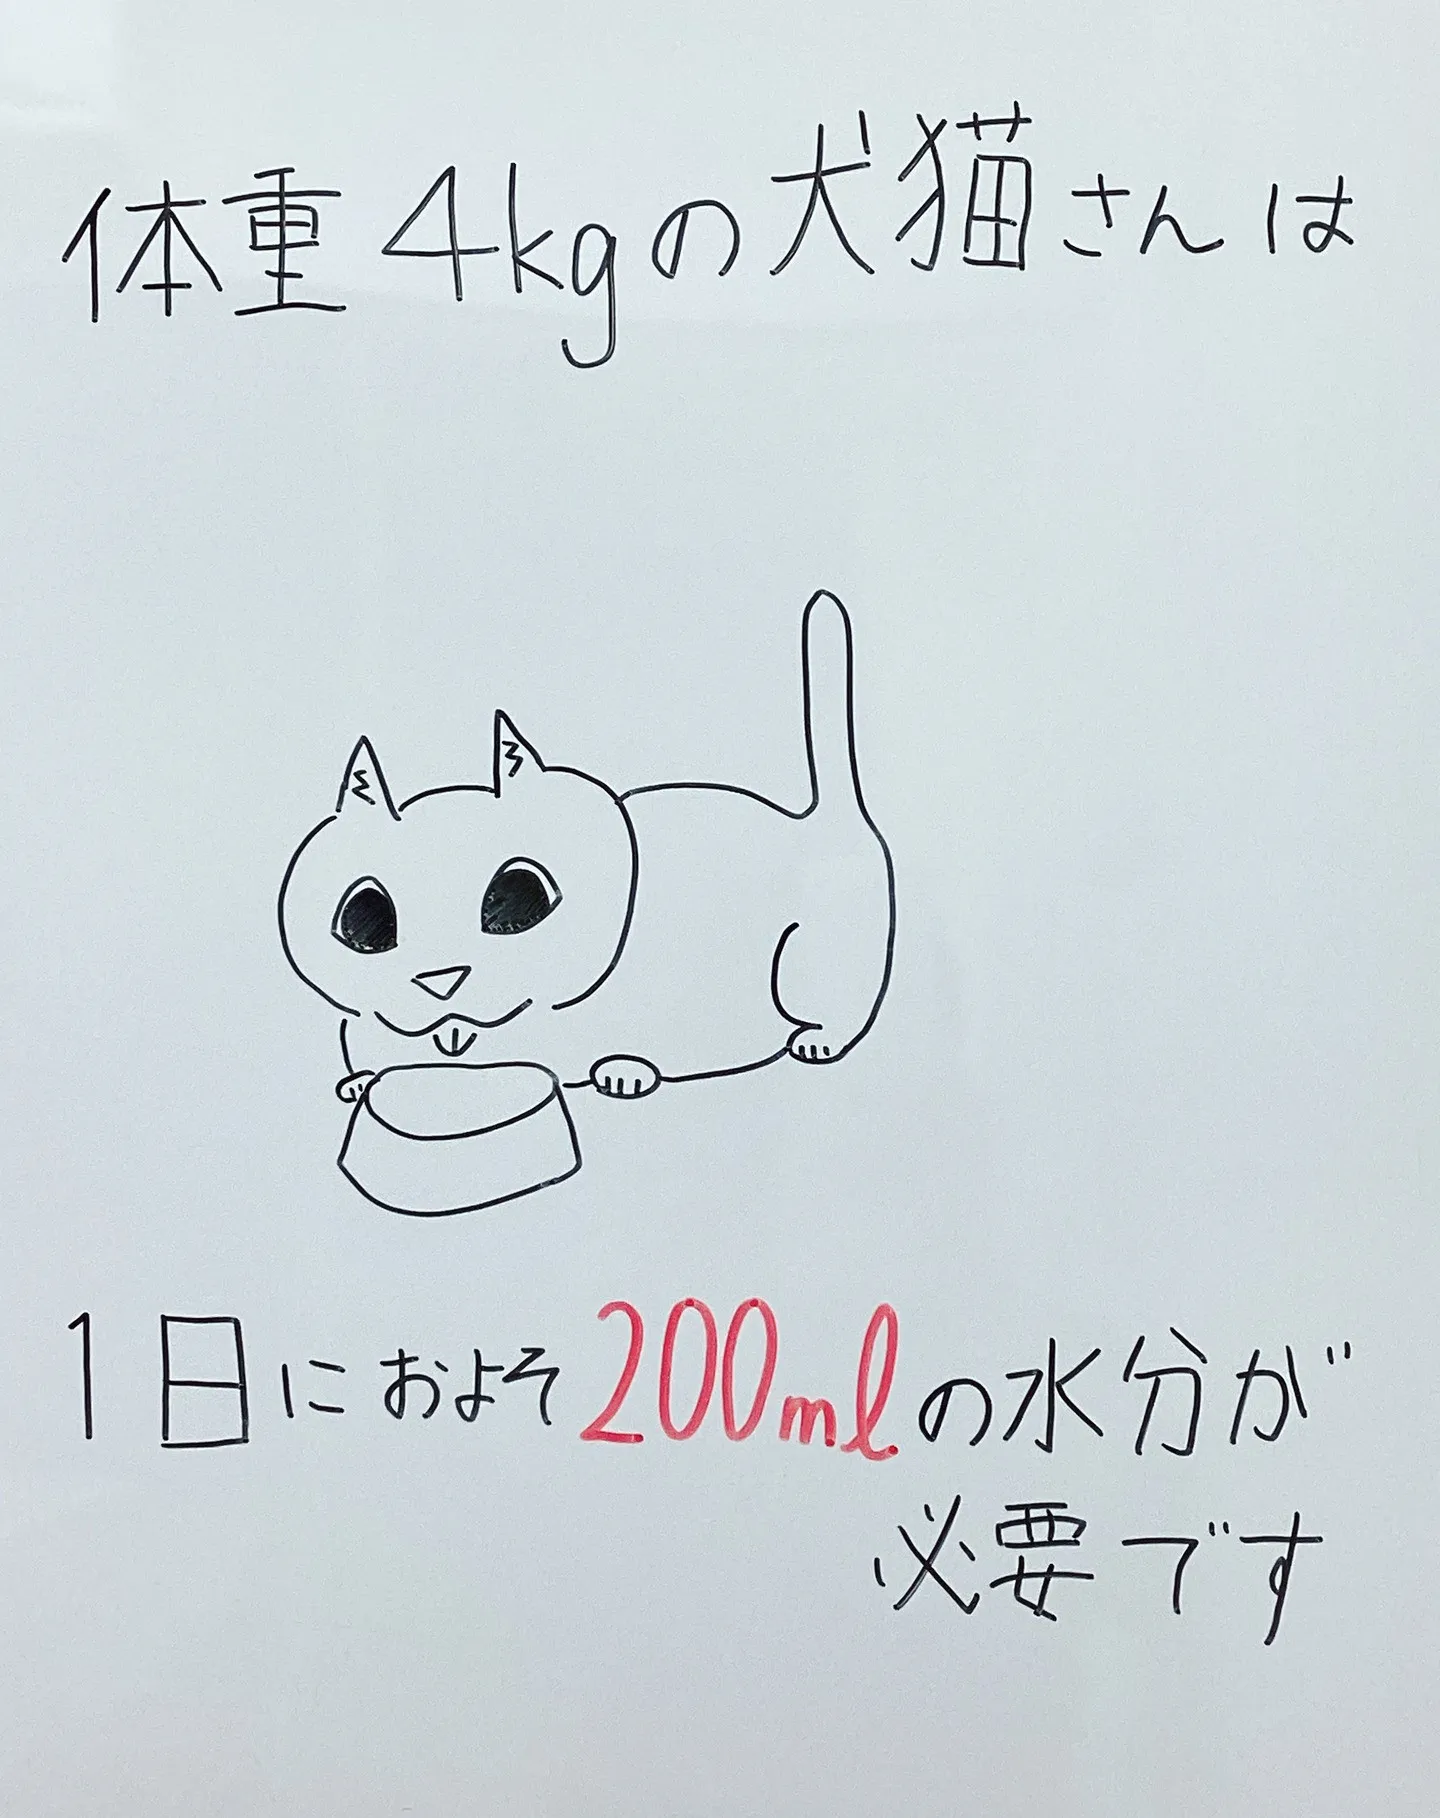 体重4kgの犬猫さんは
1日におよそ200mlの水分が
必要です